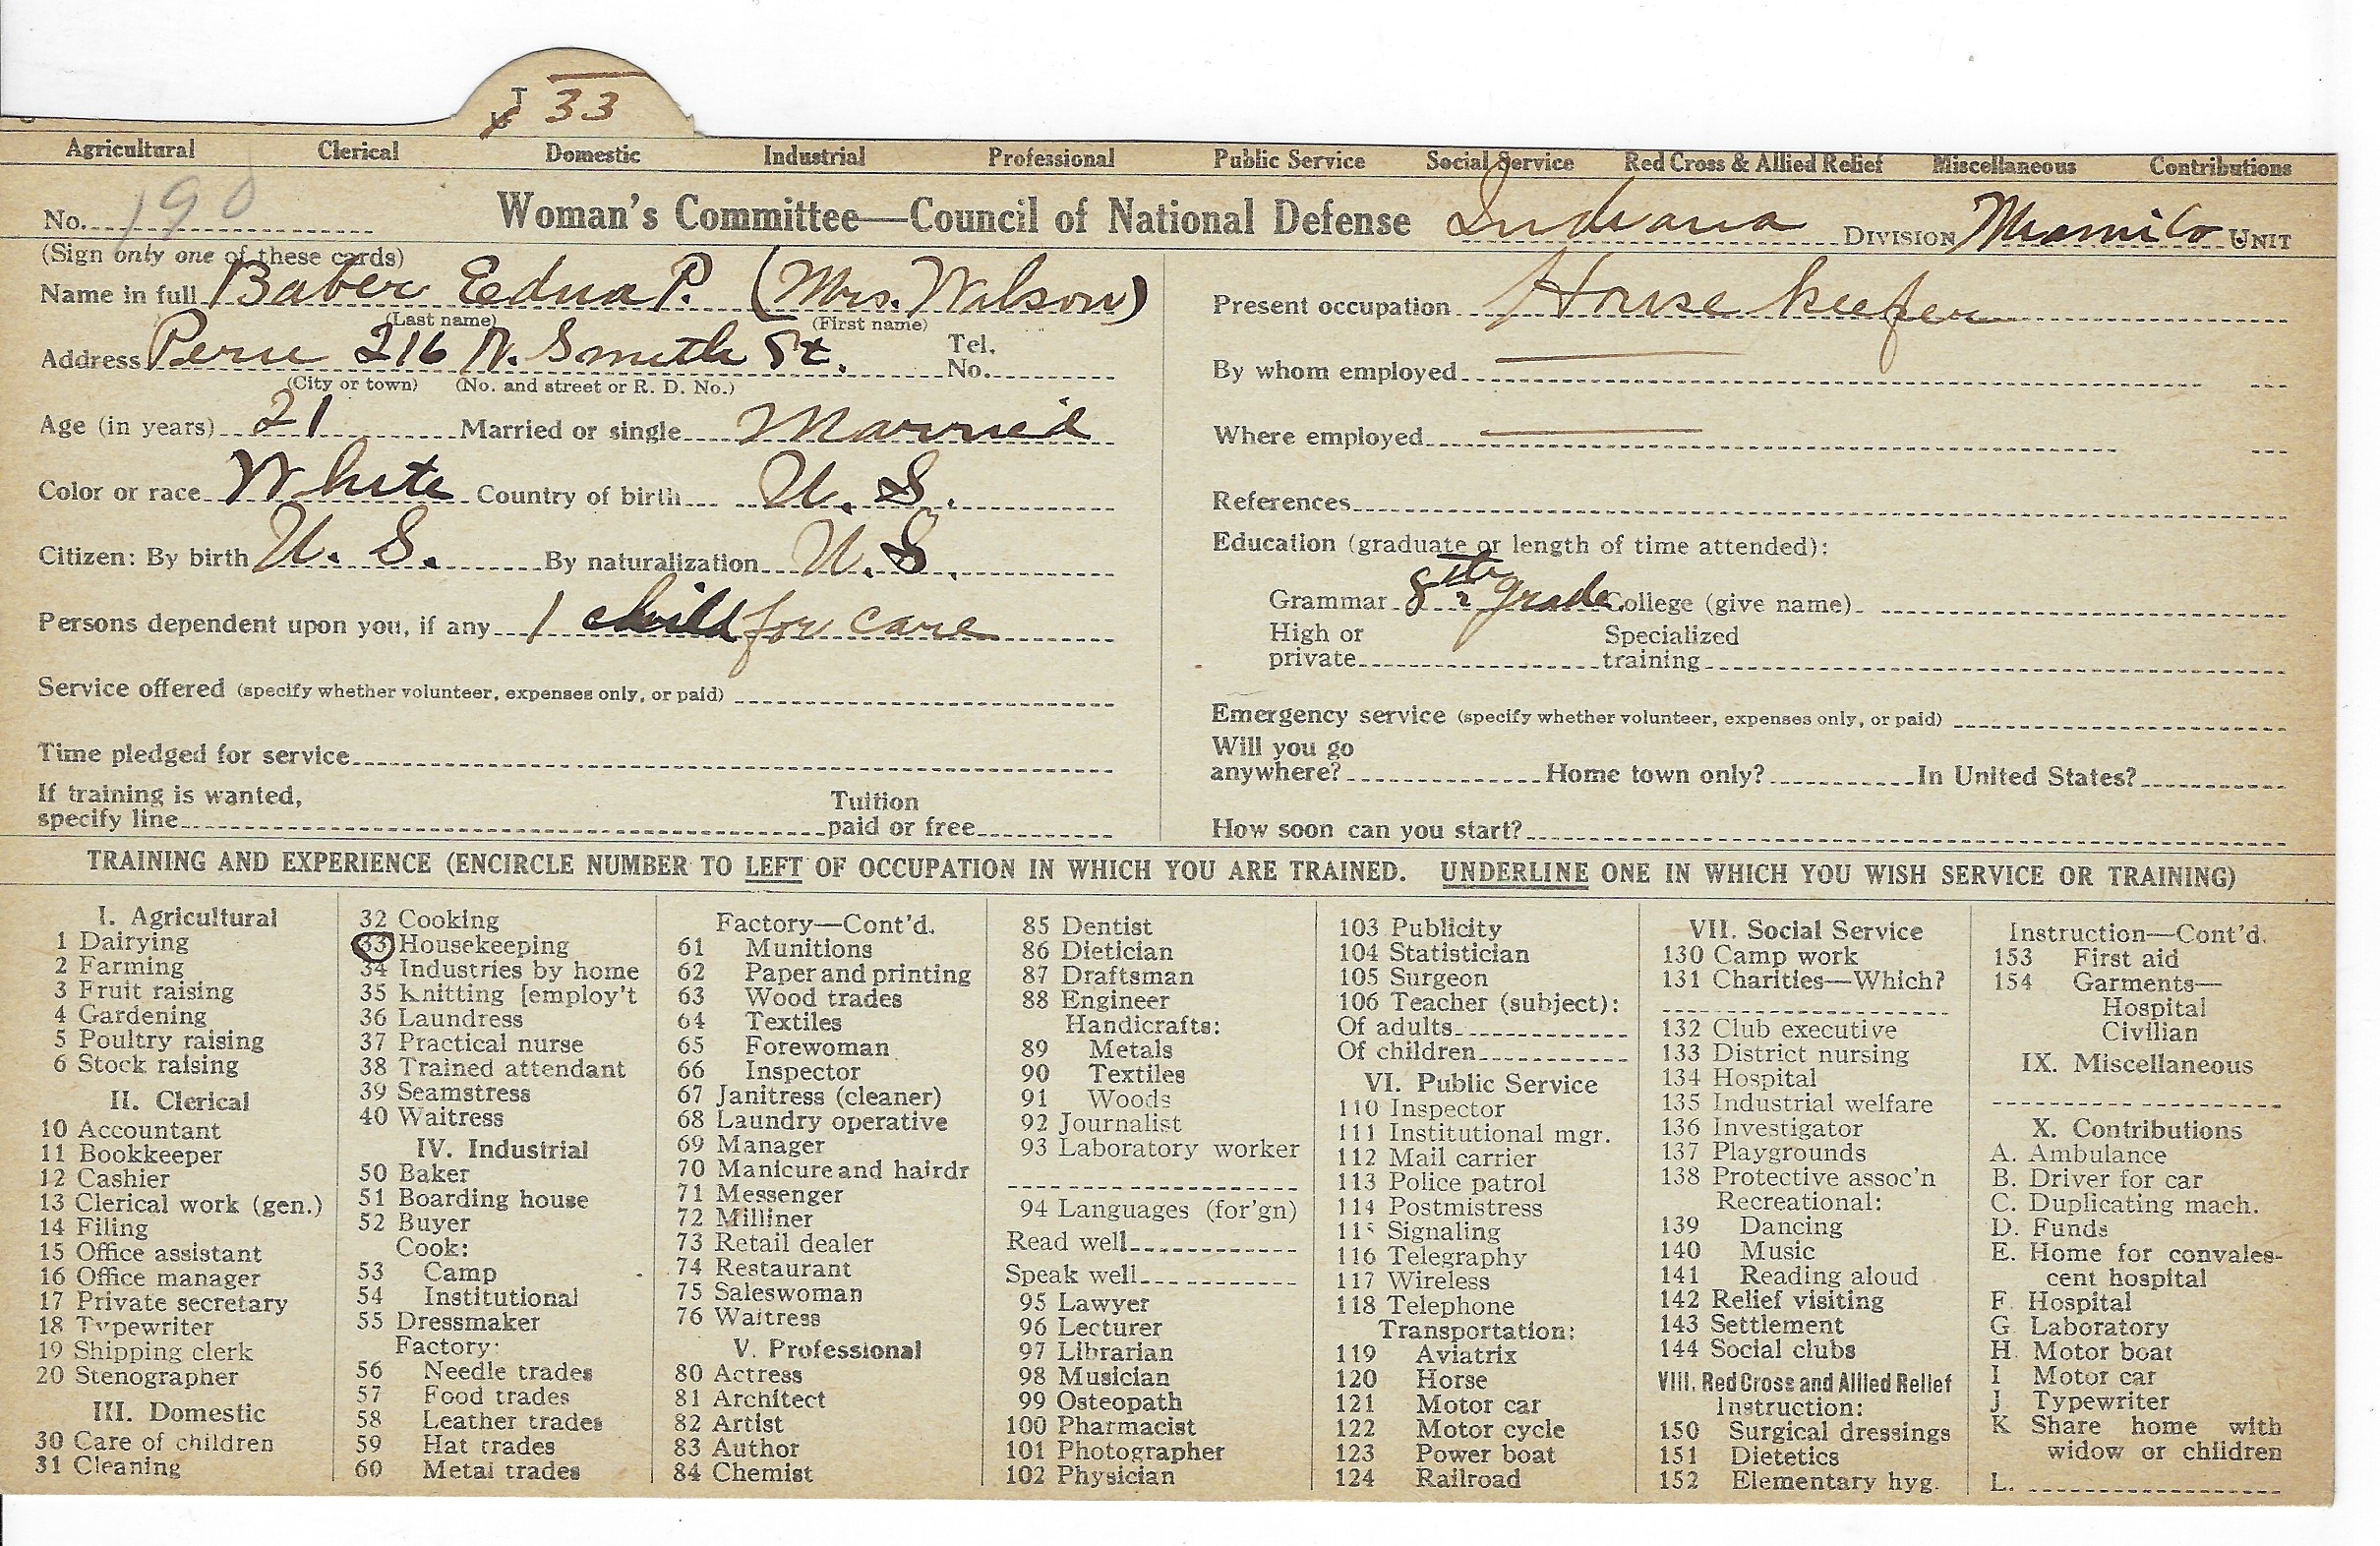 T 33
Agricultural Clerical Domestic Industrial Professional Public Service Social Service Red Cross & Allied Relief Miscellaneous Contributions
No. 190 Woman's Committee—Council of National Defense Indiana DIVISION Miami Co. UNIT
(Sign only one of these cards)
Name in full Baber Edna P. (Mrs. Wilson)
(Last name) (First name)
Address Peru 216 N. Smith St. Tel. No.
(City or town) (No. and street or R. D. No.)
Age (in years) 21 Married or single Married
Color or race White Country of birth U. S.
Citizen: By birth U. S. By naturalization U. S.
Persons dependent upon you, if any 1 child for care
Service offered (specify whether volunteer, expenses only, or paid)
Time pledged for service
If training is wanted,
specify line Tuition paid or free
Present occupation House keeper
By whom employed
Where employed
References
Education (graduate or length of time attended):
Grammar 8th grade College (give name)
High or private Specialized training
Emergency service (specify whether volunteer, expenses only, or paid)
Will you go
anywhere? Home town only? In United States?
How soon can you start?
TRAINING AND EXPERIENCE (ENCIRCLE NUMBER TO LEFT OF OCCUPATION IN WHICH YOU ARE TRAINED. UNDERLINE ONE IN WHICH YOU WISH SERVICE OR TRAINING)
I. Agricultural
1 Dairying
2 Farming
3 Fruit raising
4 Gardening
5 Poultry raising
6 Stock raising
II. Clerical
10 Accountant
11 Bookkeeper
12 Cashier
13 Clerical work (gen.)
14 Filing
15 Office assistant
16 Office manager
17 Private secretary
18 Typewriter
19 Shipping clerk
20 Stenographer
III. Domestic
30 Care of children
31 Cleaning
32 Cooking
33 Housekeeping
34 Industries by home
35 Knitting [employ't
36 Laundress
37 Practical nurse
38 Trained attendant
39 Seamstress
40 Waitress
IV. Industrial
50 Baker
51 Boarding house
52 Buyer
Cook:
53 Camp
54 Institutional
55 Dressmaker
Factory:
56 Needle trades
57 Food trades
58 Leather trades
59 Hat trades
60 Metal trades
Factory—Cont'd.
61 Munitions
62 Paper and printing
63 Wood trades
64 Textiles
65 Forewoman
66 Inspector
67 Janitress (cleaner)
68 Laundry operative
69 Manager
70 Manicure and hairdr
71 Messenger
72 Milliner
73 Retail dealer
74 Restaurant
75 Saleswoman
76 Waitress
V. Professional
80 Actress
81 Architect
82 Artist
83 Author
84 Chemist
85 Dentist
86 Dietician
87 Draftsman
88 Engineer
Handicrafts:
89 Metals
90 Textiles
91 Woods
92 Journalist
93 Laboratory worker
94 Languages (for'gn)
Read well
Speak well
95 Lawyer
96 Lecturer
97 Librarian
98 Musician
99 Osteopath
100 Pharmacist
101 Photographer
102 Physician
103 Publicity
104 Statistician
105 Surgeon
106 Teacher (subject):
Of adults
Of children
VI. Public Service
110 Inspector
111 Institutional mgr.
112 Mail carrier
113 Police patrol
114 Postmistress
115 Signaling
116 Telegraphy
117 Wireless
118 Telephone
Transportation:
119 Aviatrix
120 Horse
121 Motor car
122 Motor cycle
123 Power boat
124 Railroad
VII. Social Service
130 Camp work
131 Charities—Which?
132 Club executive
133 District nursing
134 Hospital
135 Industrial welfare
136 Investigator
137 Playgrounds
138 Protective assoc'n
Recreational:
139 Dancing
140 Music
141 Reading aloud
142 Relief visiting
143 Settlement
144 Social clubs
VIII. Red Cross and Allied Relief
Instruction:
150 Surgical dressings
151 Dietetics
152 Elementary hyg.
Instruction—Cont'd.
153 First aid
154 Garments—
Hospital
Civilian
IX. Miscellaneous
X. Contributions
A. Ambulance
B. Driver for car
C. Duplicating mach.
D. Funds
E. Home for convales-
cent hospital
F. Hospital
G. Laboratory
H. Motor boat
I Motor car
J. Typewriter
K Share home with
widow or children
L.